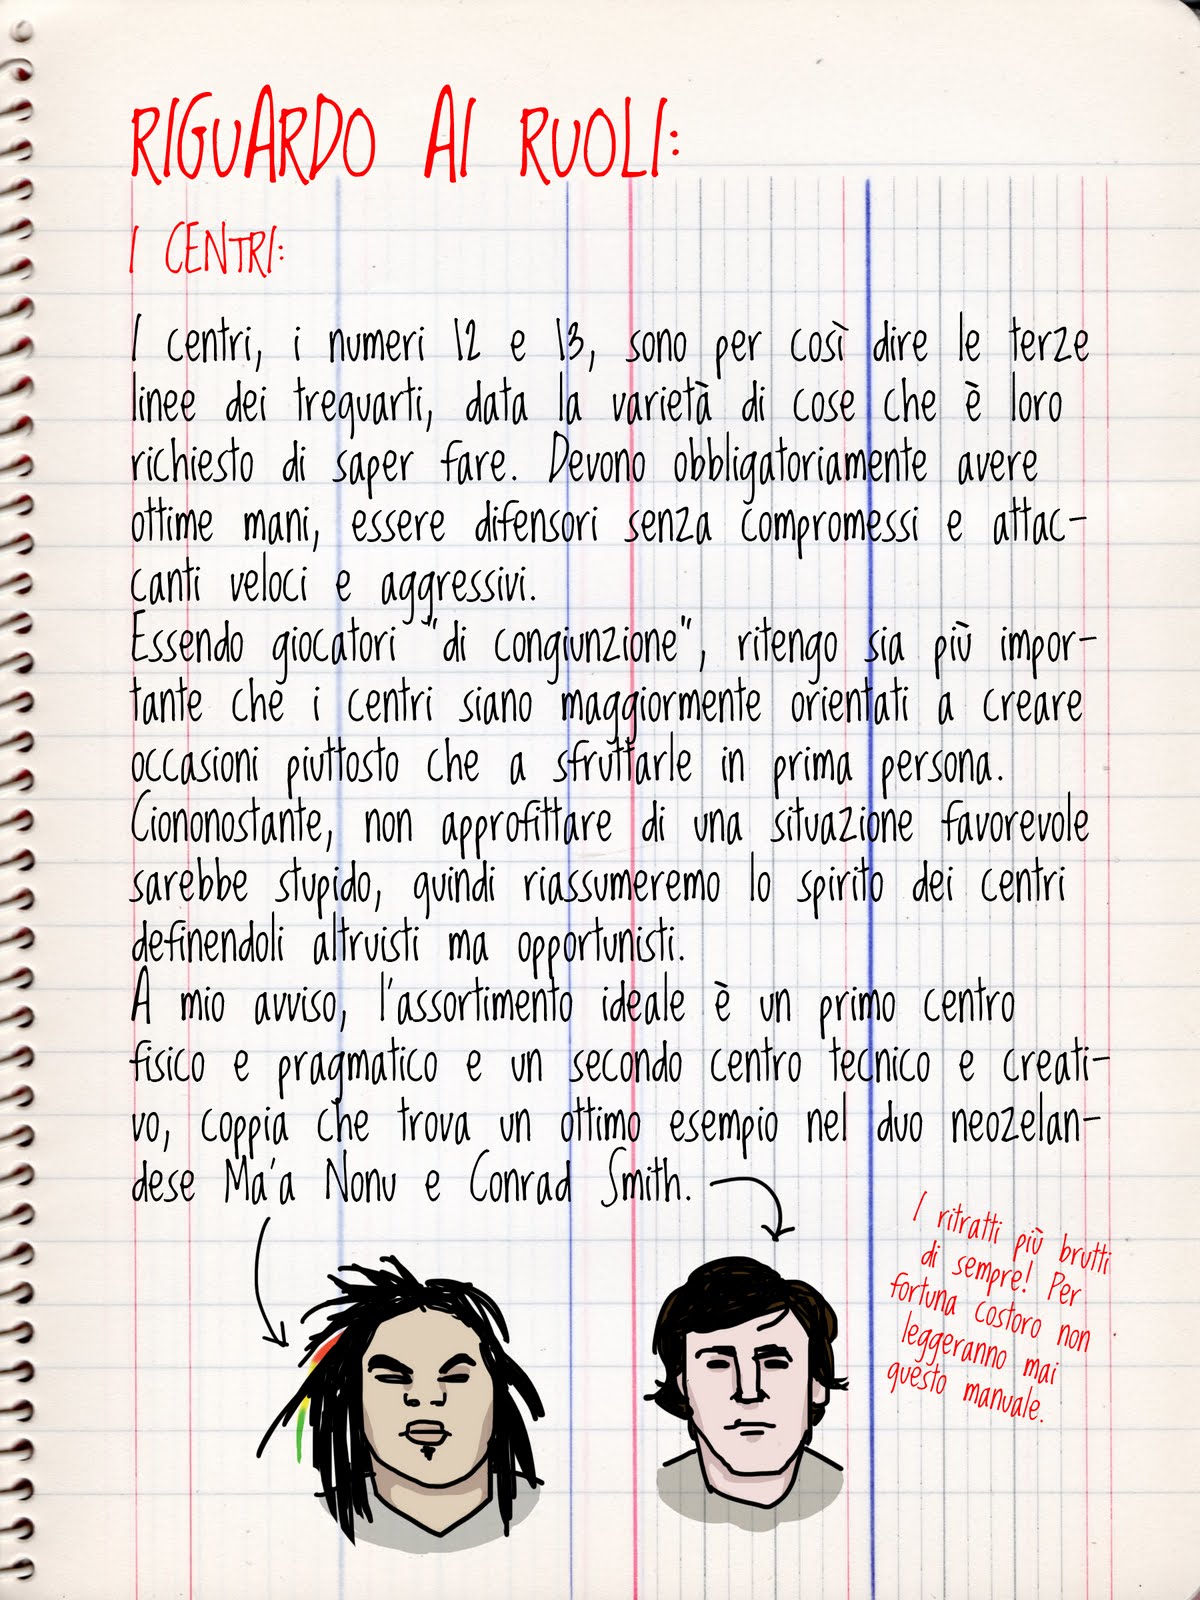 RIGUARDO AI RUOLI:
I CENTRI:
I centri, i numeri 12 e 13, sono per così dire le terze
linee dei trequarti, data la varietà di cose che è loro
richiesto di saper fare. Devono obbligatoriamente avere
ottime mani, essere difensori senza compromessi e attac-
canti veloci e aggressivi.
Essendo giocatori "di congiunzione", ritengo sia più impor-
tante che i centri siano maggiormente orientati a creare
occasioni piuttosto che a sfruttarle in prima persona.
Ciononostante, non approfittare di una situazione favorevole
sarebbe stupido, quindi riassumeremo lo spirito dei centri
definendoli altruisti ma opportunisti.
A mio avviso, l'assortimento ideale è un primo centro
fisico e pragmatico e un secondo centro tecnico e creati-
vo, coppia che trova un ottimo esempio nel duo neozelan-
dese Ma'a Nonu e Conrad Smith.
I ritratti più brutti
di sempre! Per
fortuna costoro non
leggeranno mai
questo manuale.